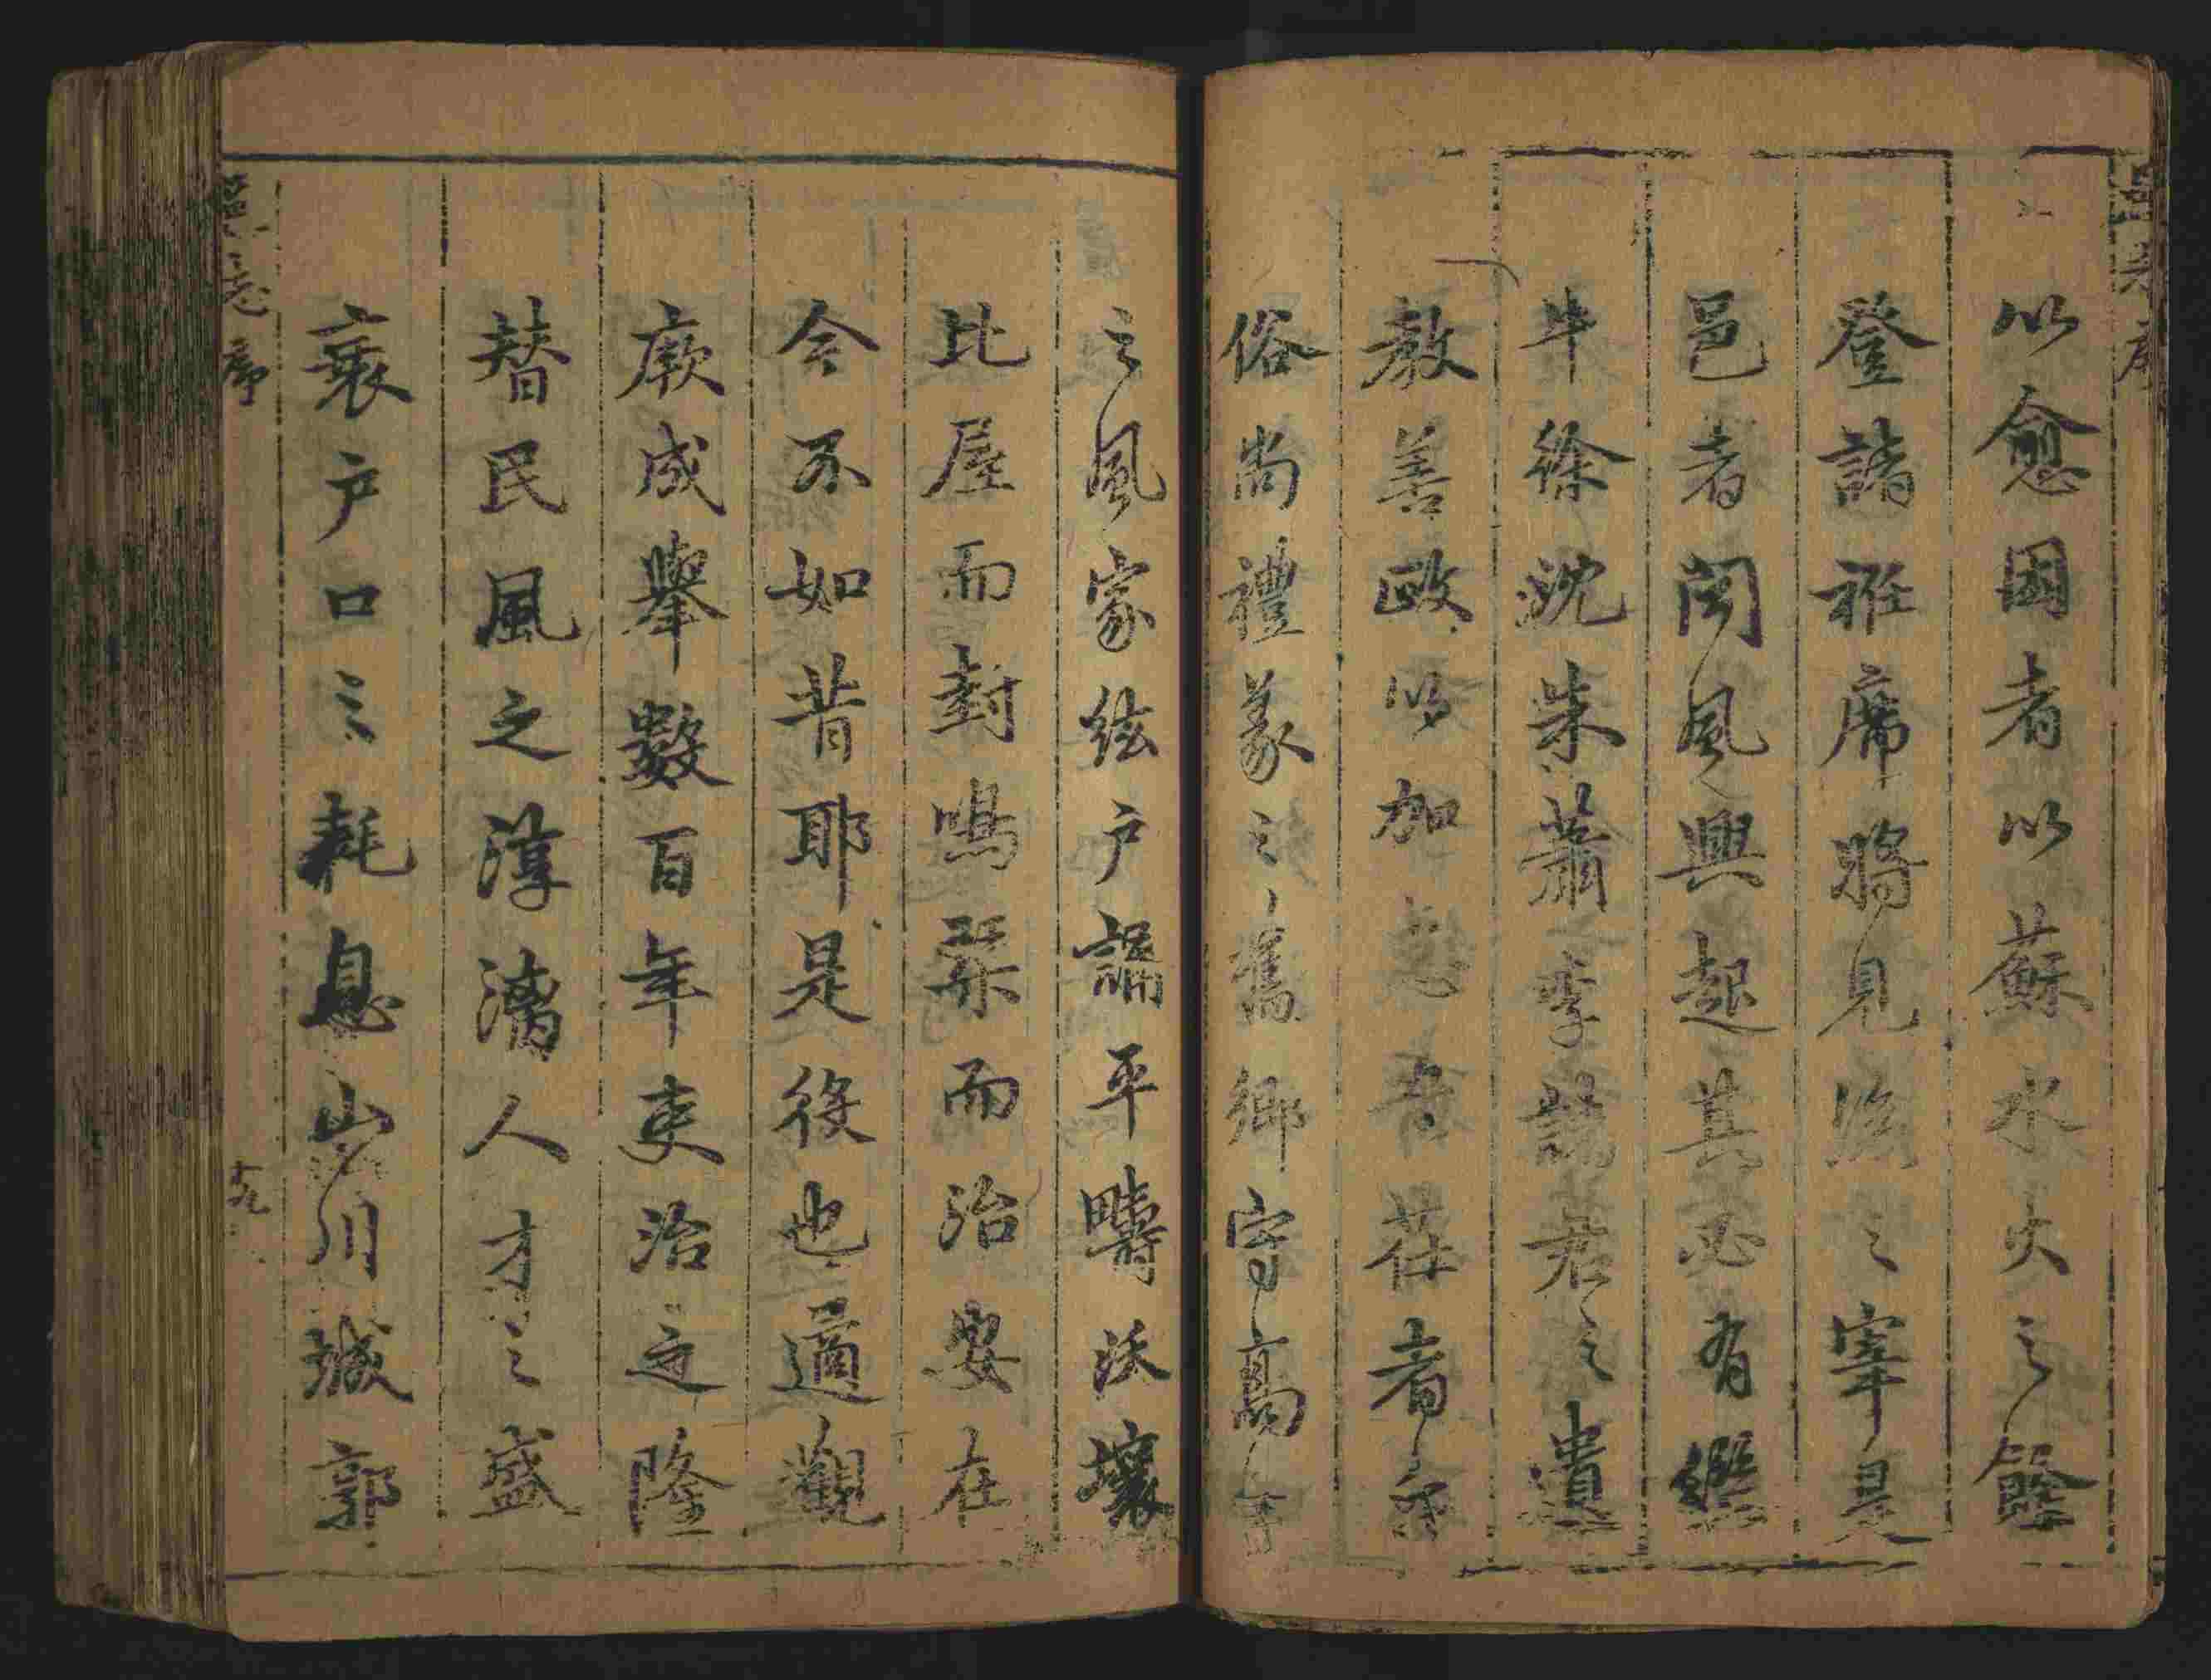 以愈困者以蘇水火之餘
登諸袵席將見後之宰是
邑者聞風興起其必有繼
牛徐沈朱蕭李諸君之遺
教善政以加惠吾茌者
俗尚禮義之舊鄉守高
之風家絃户誦平疇沃壤
比屋而封鳴琴而治安在
今不如昔耶是役也適觀
厥成舉數百年吏治之隆
替民風之淳漓人才之盛
衰户口之耗息山川城郭
志序
十九